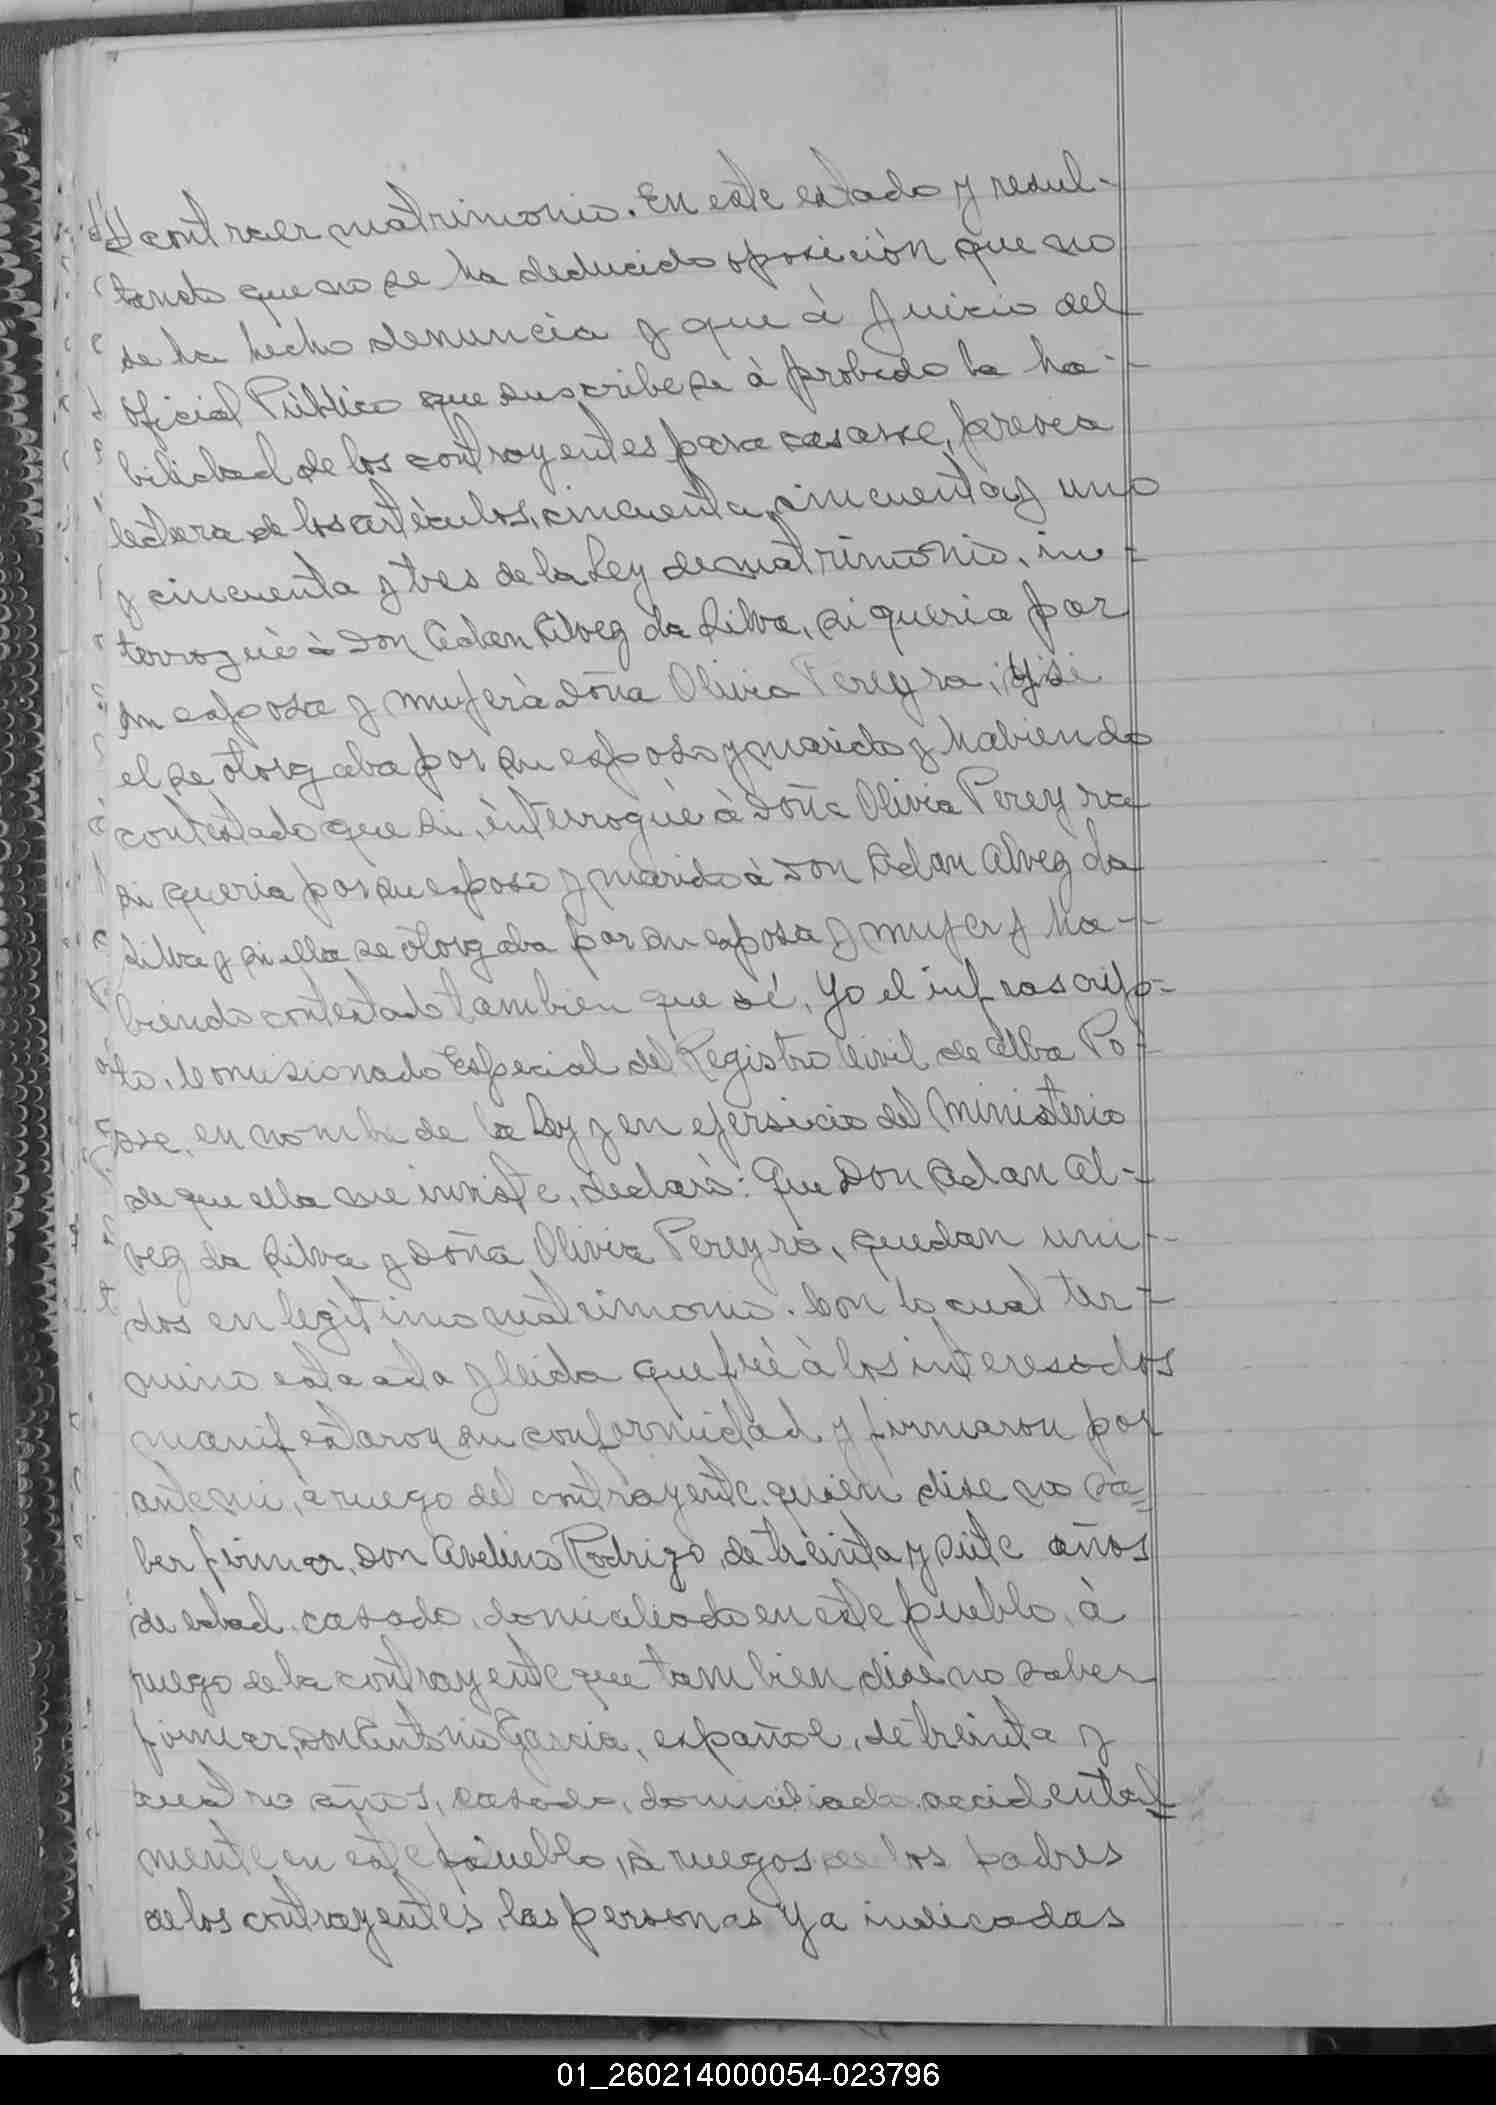 contraer matrimonio. En este estado y resul-
tando que no se ha deducido oposición que no
se ha hecho denuncia y que à juicio del
Oficial Público que suscribe se à probado la ha-
bilidad de los contrayentes para casarse, previa
lectura de los artículos, cincuenta, cincuenta y uno
y cincuenta y tres de la Ley de matrimonio, in-
terrogué à Don Adan Alveg da Silva, si queria por
su esposa y mujer à Doña Olivia Pereyra, y si
el se otorgaba por su esposo y marido y habiendo
contestado que si, interrogué à Doña Olivia Pereyra
si queria por su esposo y marido à Don Adan Alveg da
Silva y si ella se otorgaba por su esposa y mujer y ha-
biendo contestado tambien que sé, Yo el infrascrip-
to, Comisionado Especial del Registro Civil de Alba Po-
se, en nombre de la Ley y en ejersicio del Ministerio
de que ella me inviste, declaro: Que Don Adan Al-
veg da Silva y Doña Olivia Pereyra, quedan uni-
dos en legitimo matrimonio. Con lo cual ter-
mino esta acta y leida que fué à los interesados
manifestaron su conformidad y firmaron por
ante mi, à ruego del contrayente quien dise no sa=
ber firmar, Don Avelino Rodrigo, de treinta y siete años
de edad, casado, domiciliado en este pueblo, à
ruego de la contrayente que tambien dise no saber
firmar, Don Antonio Garcia, español, de treinta y
cuatro años, casado, domiciliado accidental=
mente en este pueblo, à ruegos de los padres
de los contrayentes, las personas ya indicadas
01_260214000054-023796